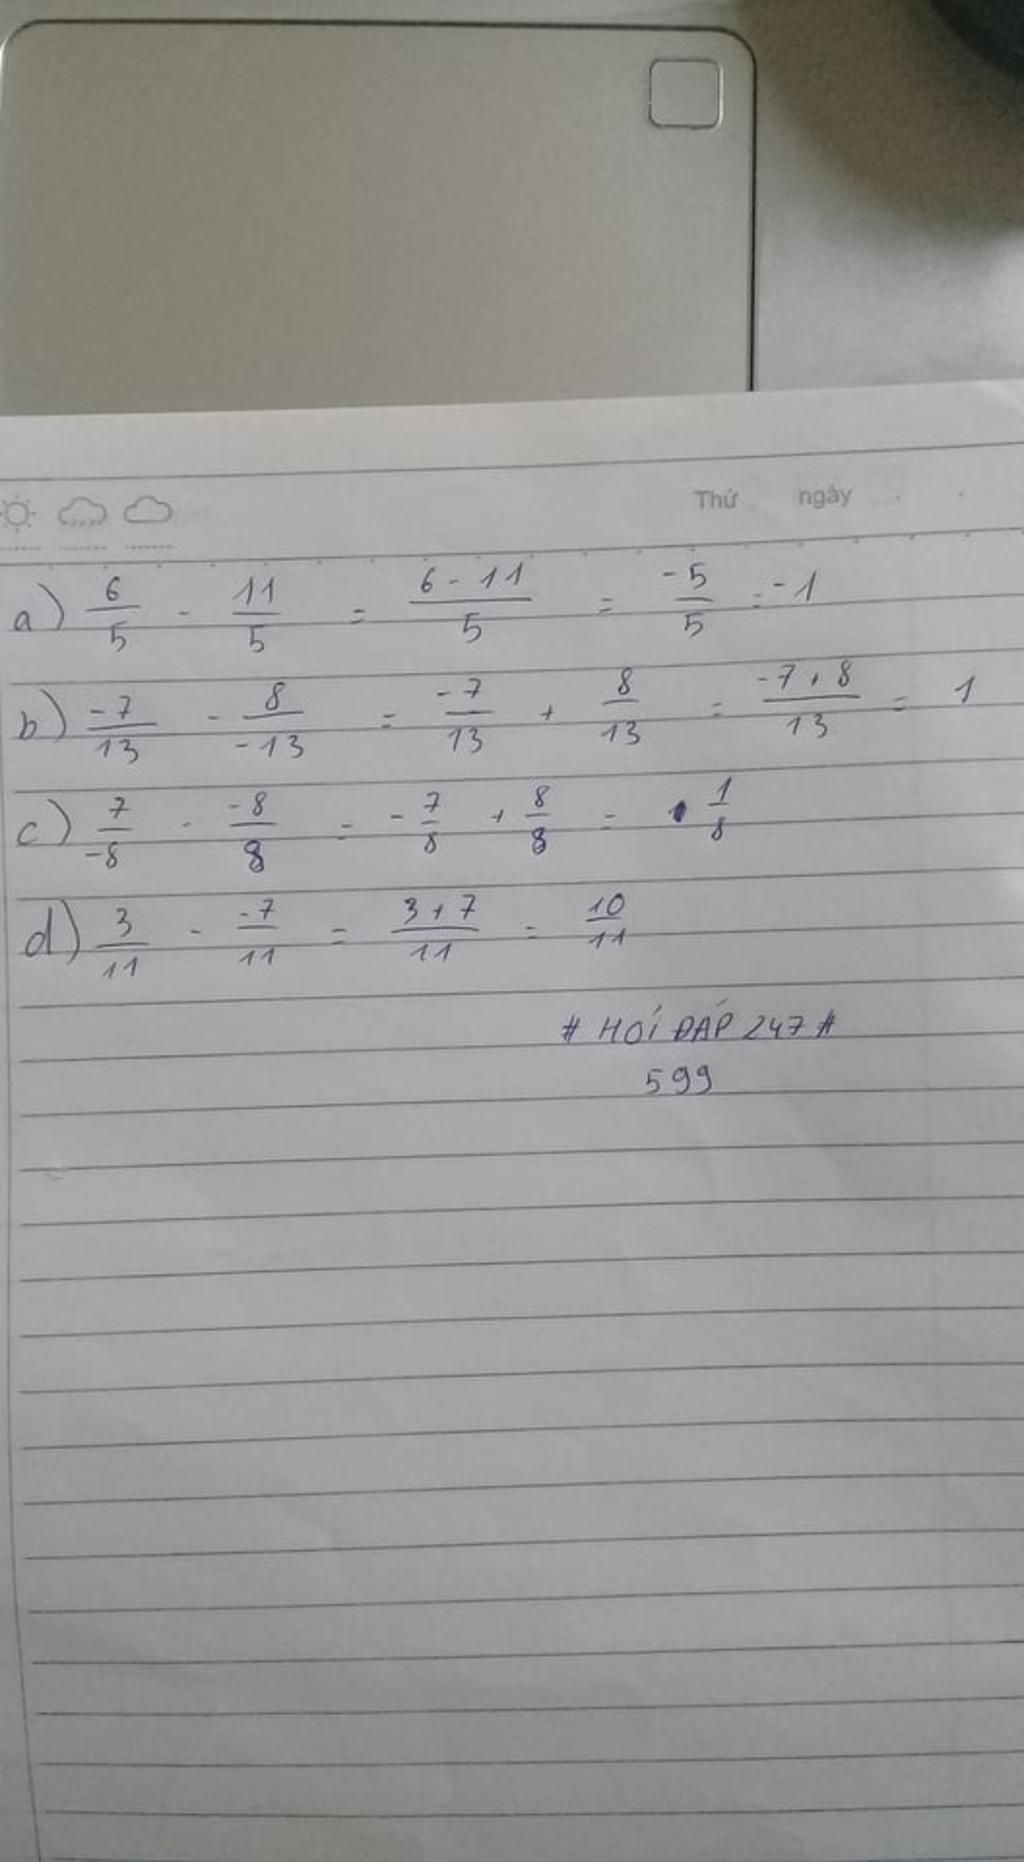 Thứ ngày
a) 6/5 - 11/5 = 6 - 11/5 = -5/5 = -1
b) -7/13 - 8/-13 = -7/13 + 8/13 = -7+8/13 = 1
c) 7/-8 - -8/8 = -7/8 + 8/8 = 1/8
d) 3/11 - -7/11 = 3+7/11 = 10/11
# HỎI ĐÁP 247 #
599